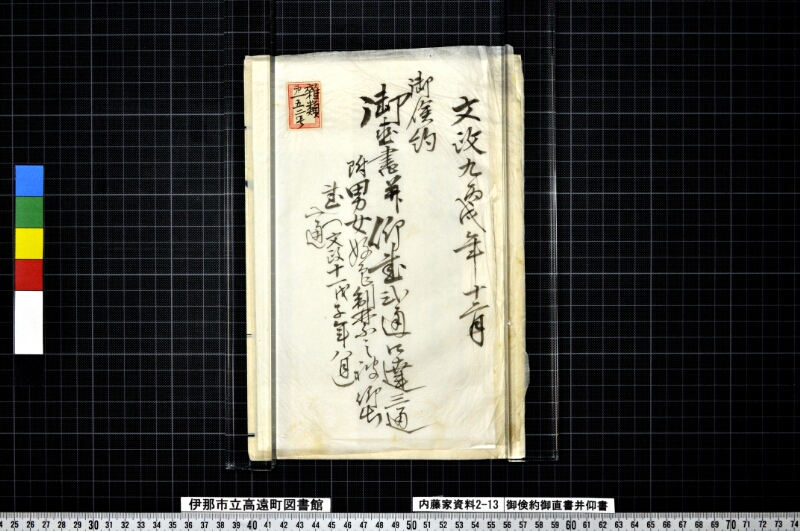 文政九丙戌年十二月
御倹約
御直書并仰書弐通口達三通
附男女好色制禁之被仰出
書一通
文政十一戊子年八月
雑類
第一五二号
伊那市立高遠町図書館
内藤家資料2-13
御倹約御直書并仰書
25 26 27 28 29 30 31 32 33 34 35 36 37 38 39 40 41 42 43 44 45 46 47 48 49 50 51 52 53 54 55 56 57 58 59 60 61 62 63 64 65 66 67 68 69 70 71 72 73